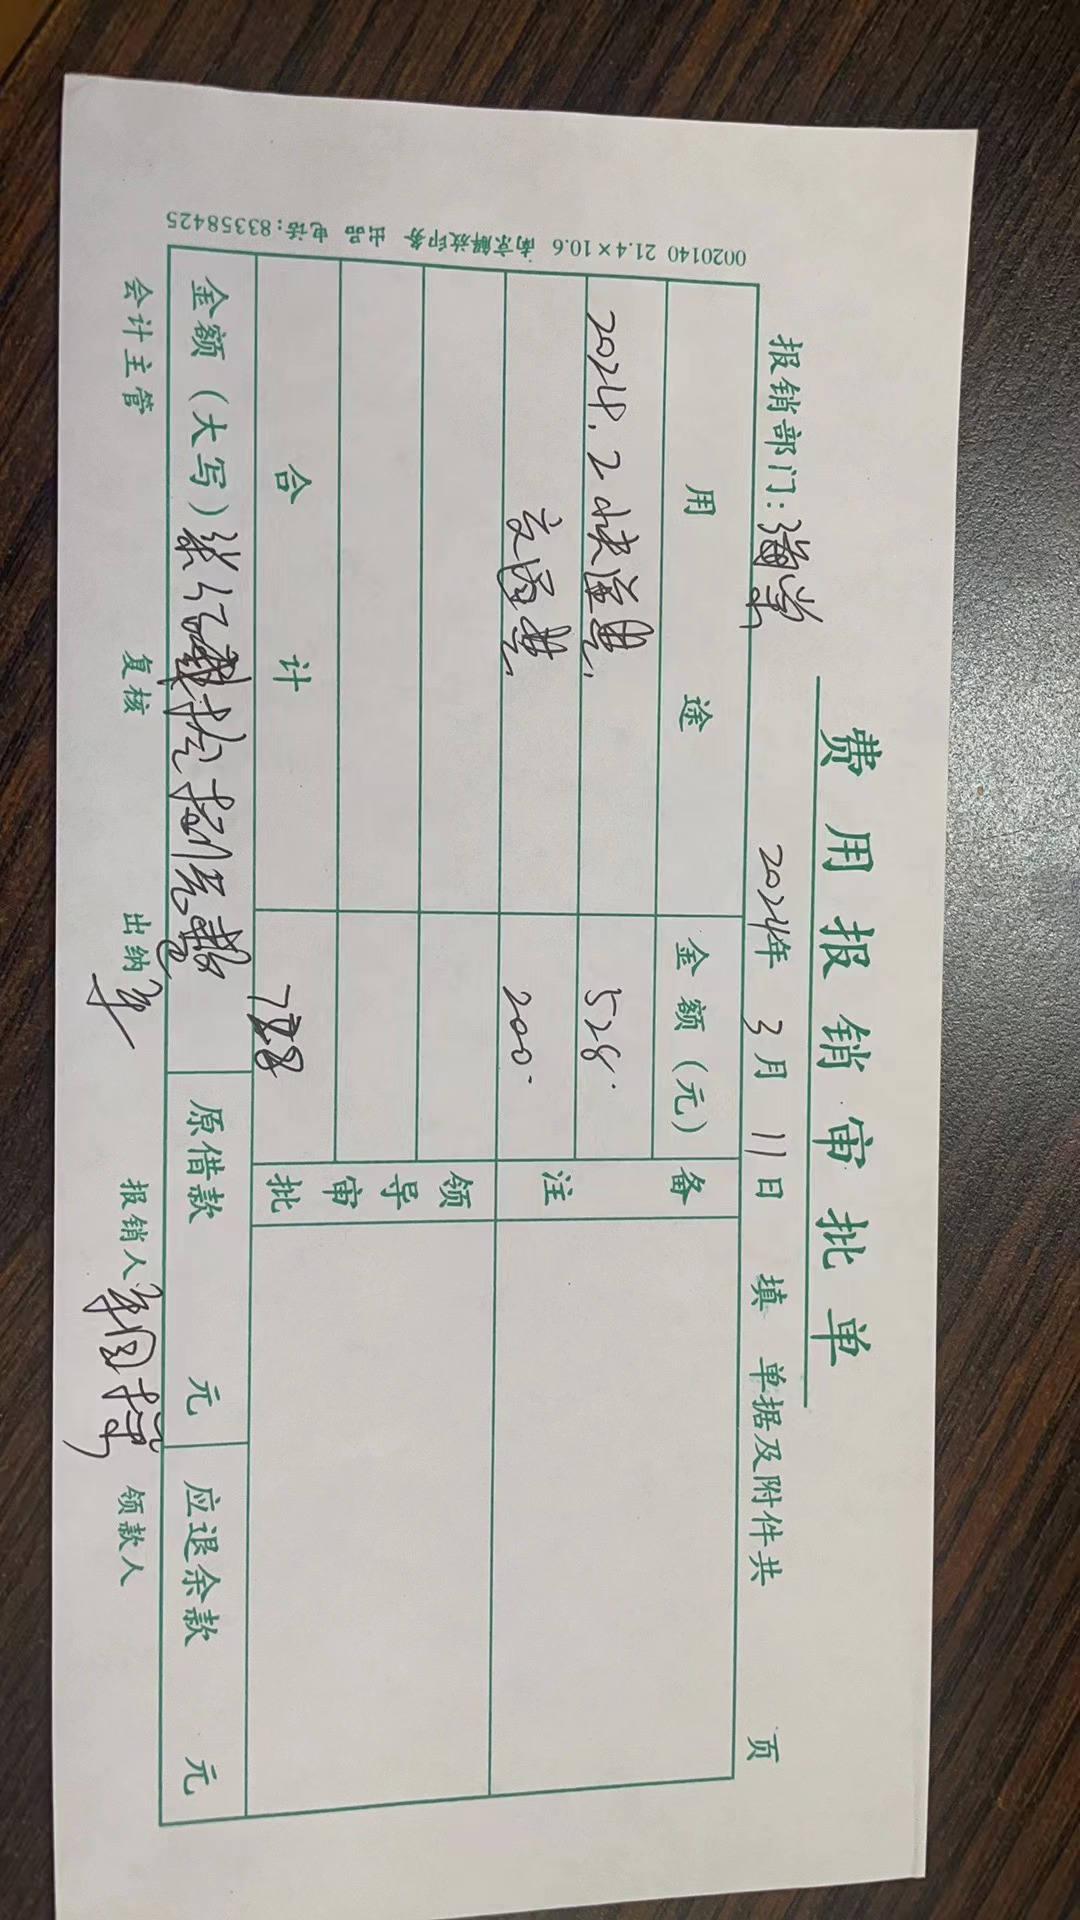 费用报销审批单
报销部门: 2024年 3月 11日 填 单据及附件共 页
用途 金额(元) 备注
2024.2 费 528.
交通费 200.
领导审批
合计 728
金额(大写) 原借款 元 应退余款 元
会计主管 复核 出纳 报销人 领款人
0020140 21.4×10.6 南京解放印务 出品 电话:83358425